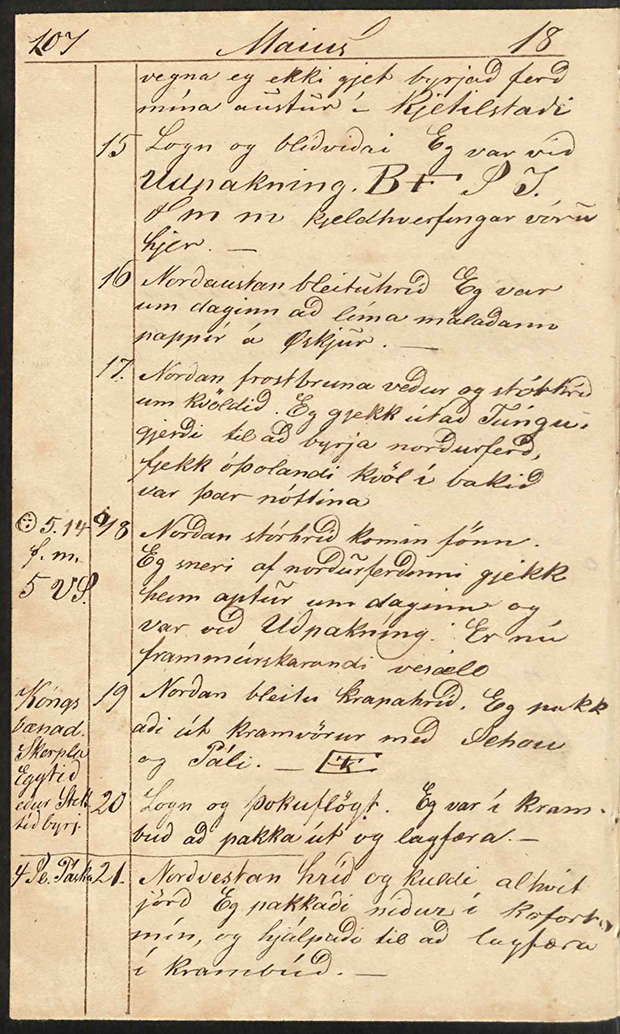 107 Maius 18
vegna eg ekki gjet byrjad ferd
mína austur í Kjetilstadi
15 Logn og blidvidri Eg var vid
Udpakning. B+F P J.
S m m Kjeldhverfingar vóru
hjer. —
16 Nordaustan bleituhríd Eg var
um daginn ad líma máladann
pappír á Øskjur. —
17. Nordan frostbruna vedur og stórhríd
um kvöldid. Eg gjekk út ad Túngu-
gjerdi til ad byrja nordurferd,
fjekk óþolandi kvöl í bakid
var þar nóttina
5. 14 18 Nordan stórhríd komin fönn.
f. m. Eg sneri af nordurferdinni gjekk
5 VS. heim aptur um daginn og
var vid Udpakníng. Er nú
frammúrskarandi vesæld
Kóngs 19 Nordan bleitu krapahríd. Eg pakk
bænad. adi út kramvörur med Schou
Skerpla og Páli. —
Eggtid
edur Stekk 20 Logn og þokuflögt. Eg var í kram-
tid byrj. bud ad pakka út og lagfæra. —
4 Se. Páska 21. Nordvestan hríd og kuldi alhvít
jörd Eg pakkadi nidur í Kofort
mín, og hjalpadi til ad lagfæra
í krambúd. —